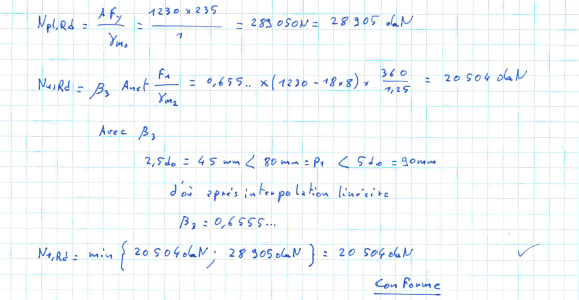 Npl,Rd = A Fy / γm0 = 1230 x 235 / 1 = 289050N = 28 905 daN
Nu,Rd = β3 Anet Fu / γm2 = 0,655.. x (1230 - 18 x 8) x 360 / 1,25 = 20 504 daN
Avec β3
2,5do = 45 mm < 80 mm = P1 < 5do = 90mm
d'où après interpolation linéaire
β3 = 0,6555...
Nt,Rd = min { 20 504 daN ; 28 905 daN } = 20 504 daN ✓
Conforme